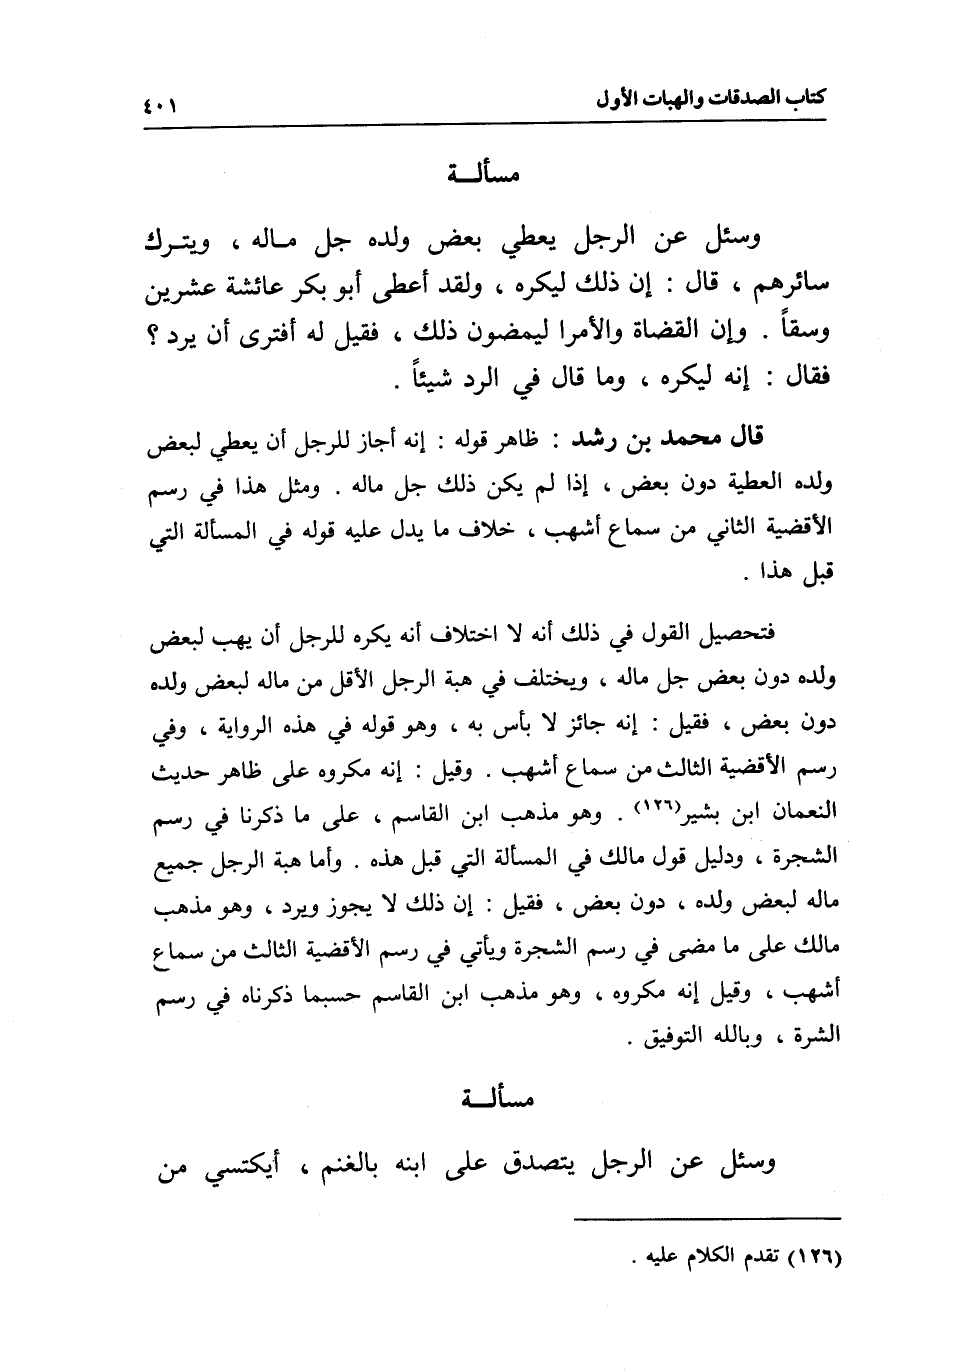 كتاب الصدقات والهبات الأول ٤٠١
مسألــة
وسئل عن الرجل يعطي بعض ولده جل مـاله ، ويتـرك
سائرهم ، قال : إن ذلك ليكره ، ولقد أعطى أبو بكر عائشة عشرين
وسقاً . وإن القضاة والأمرا ليمضون ذلك ، فقيل له أفترى أن يرد ؟
فقال : إنه ليكره ، وما قال في الرد شيئاً .
قال محمد بن رشد : ظاهر قوله : إنه أجاز للرجل أن يعطي لبعض
ولده العطية دون بعض ، إذا لم يكن ذلك جل ماله . ومثل هذا في رسم
الأقضية الثاني من سماع أشهب ، خلاف ما يدل عليه قوله في المسألة التي
قبل هذا .
فتحصيل القول في ذلك أنه لا اختلاف أنه يكره للرجل أن يهب لبعض
ولده دون بعض جل ماله ، ويختلف في هبة الرجل الأقل من ماله لبعض ولده
دون بعض ، فقيل : إنه جائز لا بأس به ، وهو قوله في هذه الرواية ، وفي
رسم الأقضية الثالث من سماع أشهب . وقيل : إنه مكروه على ظاهر حديث
النعمان ابن بشير(١٢٦) . وهو مذهب ابن القاسم ، على ما ذكرنا في رسم
الشجرة ، ودليل قول مالك في المسألة التي قبل هذه . وأما هبة الرجل جميع
ماله لبعض ولده ، دون بعض ، فقيل : إن ذلك لا يجوز ويرد ، وهو مذهب
مالك على ما مضى في رسم الشجرة ويأتي في رسم الأقضية الثالث من سماع
أشهب ، وقيل إنه مكروه ، وهو مذهب ابن القاسم حسبما ذكرناه في رسم
الشرة ، وبالله التوفيق .
مسألــة
وسئل عن الرجل يتصدق على ابنه بالغنم ، أيكتسي من
(١٢٦) تقدم الكلام عليه .